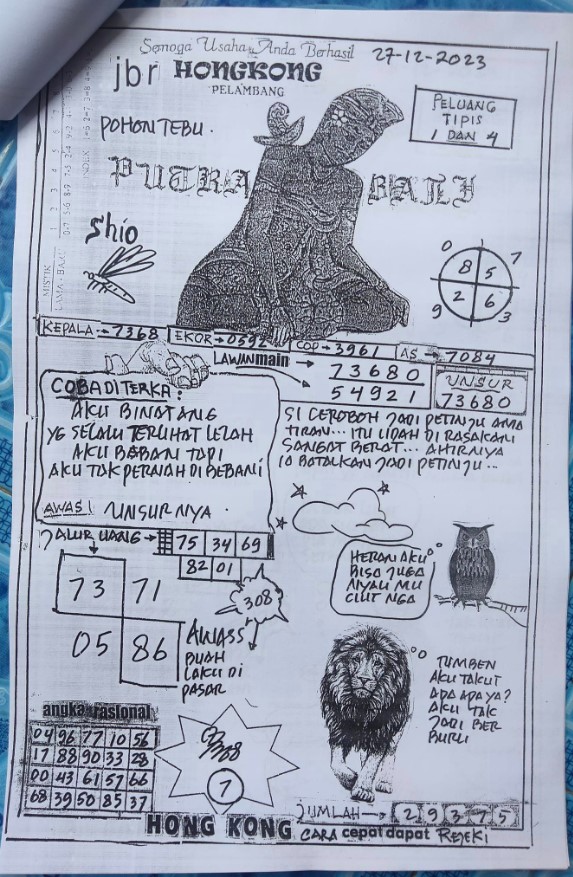 Semoga Usaha Anda Berhasil
27-12-2023
jbr HONGKONG
PELAMBANG
PELUANG
TIPIS
1 DAN 4
POHON TEBU.
PUTRA
Shio
0 7
8 5
2 6
9 3
KEPALA → 7368
EKOR → 0592
COP → 3961
AS → 7084
LAWAN main
73680
54921
UNSUR
73680
COBA DITERKA:
AKU BINATANG
YG SELALU TERLIHAT LELAH
AKU BABANI TAPI
AKU TAK PERNAH DI BEBANI
AWAS! UNSURNYA.
SI CEROBOH JADI PETINJU AMA
TIRAN... ITU LIDAH DI RASAKAN
SANGAT BERAT... AHIRNYA
IA BATALKAN JADI PETINJU...
JALUR UANG →
75 34 69
82 01
308
73 71
05 86
AWASS
BUAH
LAKU DI
PASAR
HERAN AKU
BISA JUGA
NYALI MU
CIUT NGA
TUMBEN
AKU TAKUT
ADA APA YA?
AKU TAK
JADI BER
BURU
angka rasional
04 96 77 10 56
17 88 90 33 28
00 43 61 57 66
68 39 50 85 37
7
JUMLAH → 2 9 3 7 5
HONG KONG CARA cepat dapat REJEKI